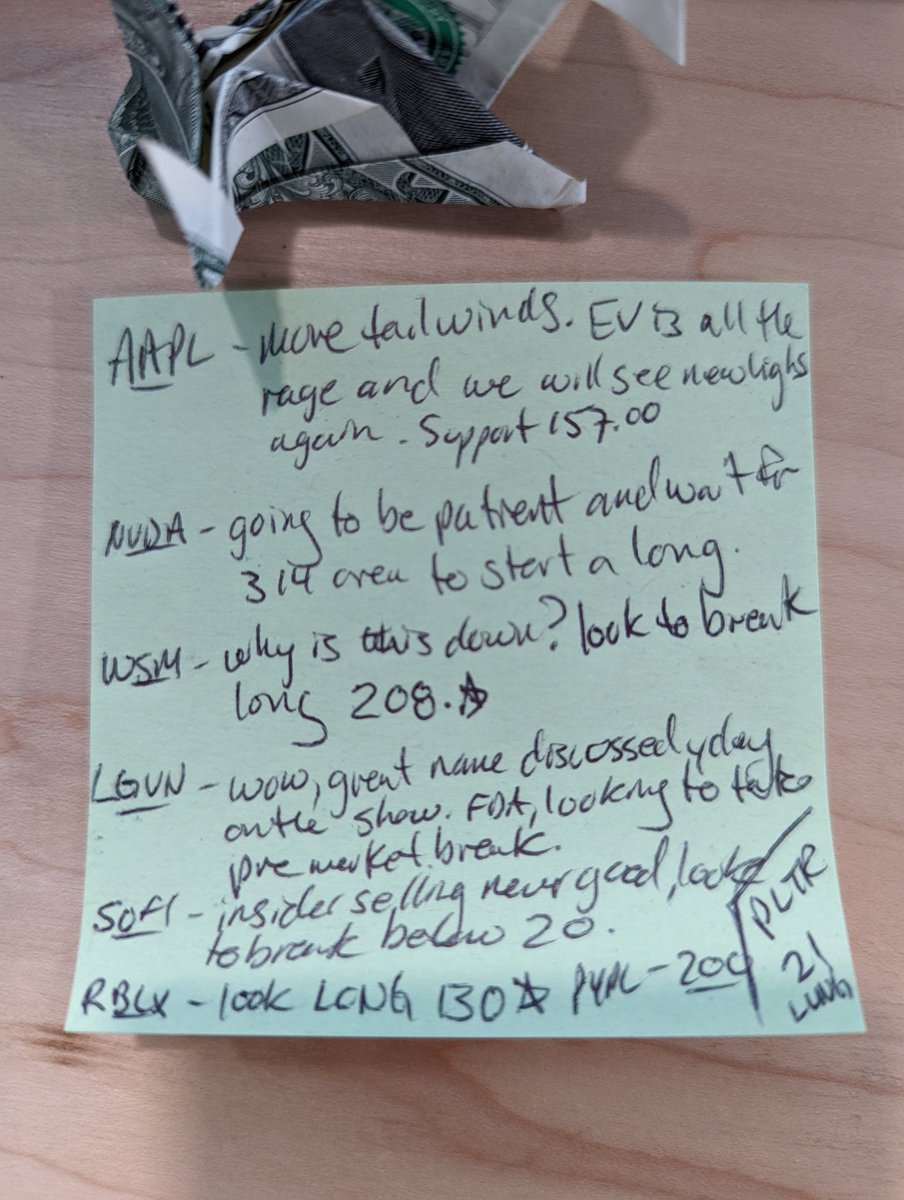 AAPL - more tailwinds. EV is all the
rage and we will see new highs
again. Support 157.00
NVDA - going to be patient and wait for
314 area to start a long.
WSM - why is this down? look to break
long 208.☆
LGVN - wow, great name discussed yday
on the show. FDA, looking to take
pre market break.
SOFI - insider selling never good, look
to break below 20.
RBLX - look LONG 130☆ PYPL - 200
PLTR
21
LONG